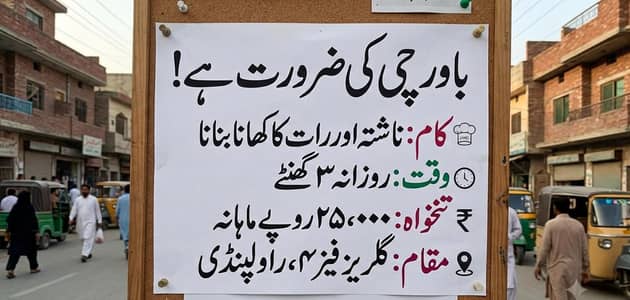 باورچی کی ضرورت ہے!
کام: ناشتہ اور رات کا کھانا بنانا
وقت: روزانہ ۳ گھنٹے
تنخواہ: ۲۵،۰۰۰ روپے ماہانہ
مقام: گلریز فیز ۴، راولپنڈی